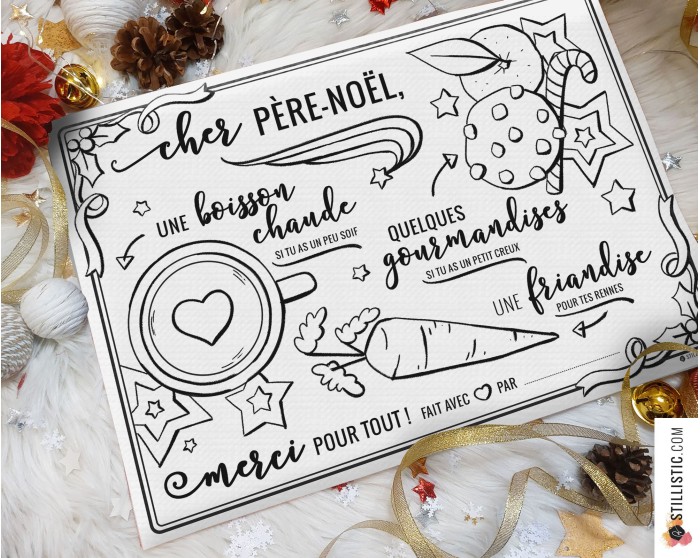 cher PÈRE-NOËL,
UNE boisson
chaude
SI TU AS UN PEU SOIF
QUELQUES
gourmandises
SI TU AS UN PETIT CREUX
UNE friandise
POUR TES RENNES
merci POUR TOUT ! FAIT AVEC PAR
STILLISTIC.COM